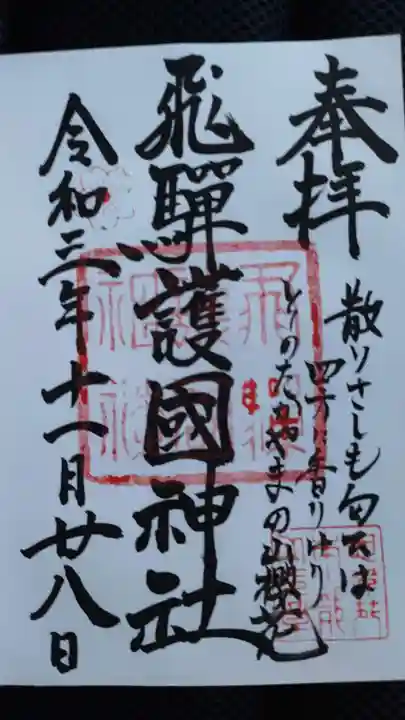 奉拝
散りさしも匂ひは
四方に香りけり
しのたかやまの山櫻花
飛騨護國神社
令和三年十一月廿八日